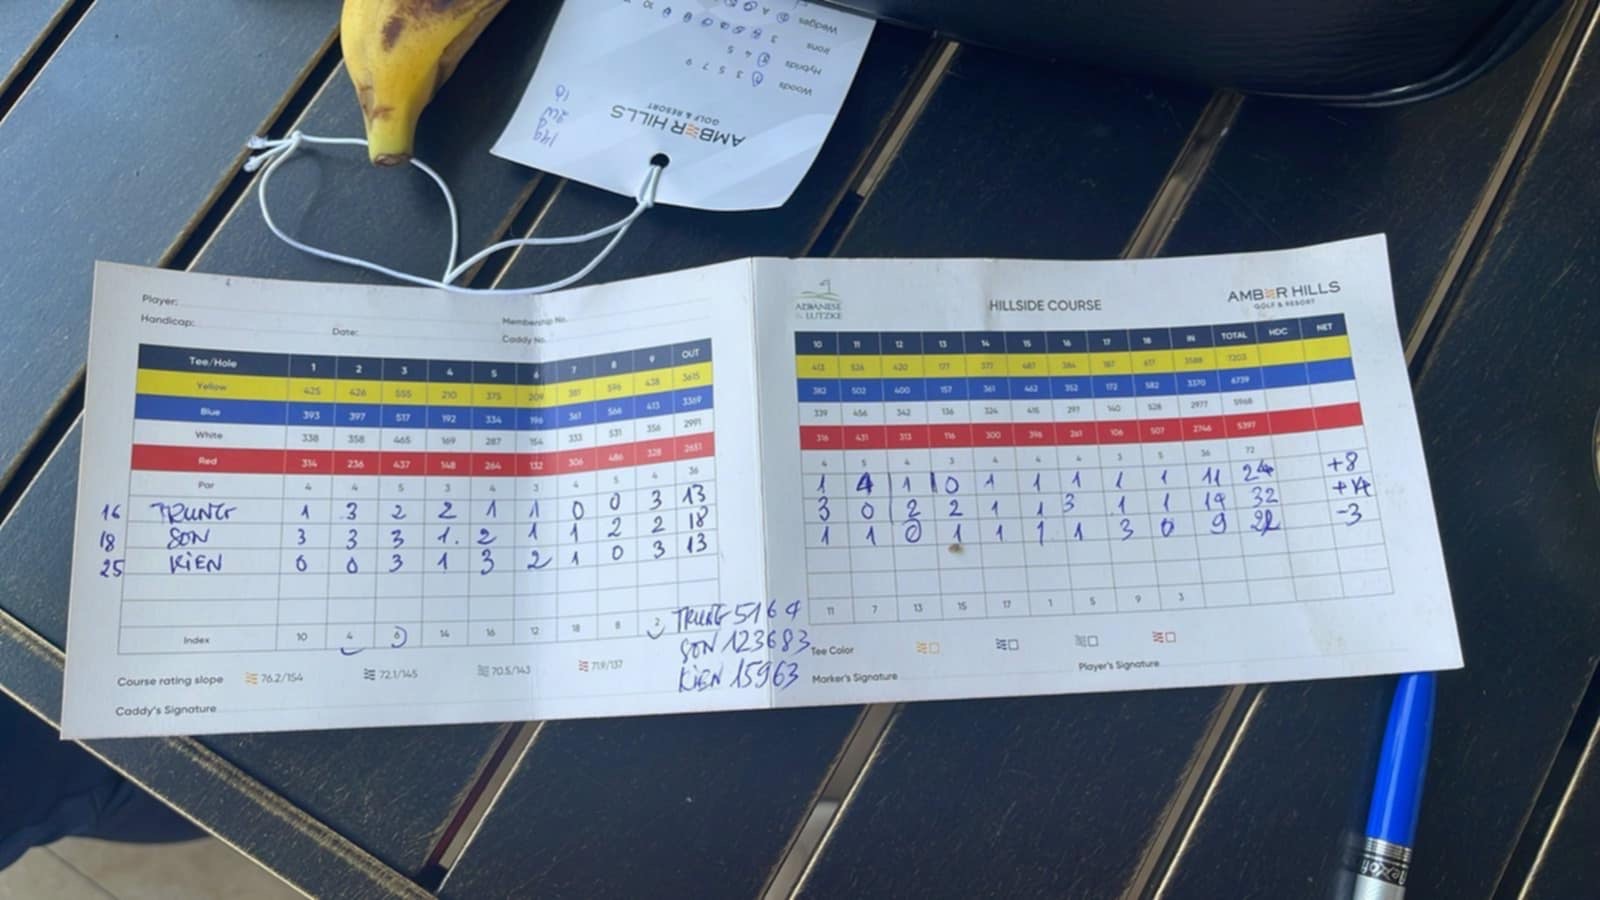 Wedges
Irons
Hybrids 4 5
Woods 3 5 7 9
AMBER HILLS
GOLF & RESORT
Player:
Handicap:
Date:
Membership No.
Caddy No.
Tee/Hole 1 2 3 4 5 6 7 8 9 OUT
Yellow 425 426 555 210 375 209 381 596 438 3615
Blue 393 397 517 192 334 196 361 566 413 3369
White 338 358 465 169 287 154 333 531 356 2991
Red 314 236 437 148 264 132 306 486 328 2651
Par 4 4 5 3 4 3 4 5 4 36
16 TRUNG 1 3 2 2 1 1 0 0 3 13
18 SON 3 3 3 1. 2 1 1 2 2 18
25 KIEN 0 0 3 1 3 2 1 0 3 13
Index 10 4 6 14 16 12 18 8 2
Course rating slope 76.2/154 72.1/145 70.5/143 71.9/137
Caddy's Signature
TRUNG 5164
SON 123683
KIEN 15963
ALBANESE
& LUTZKE
HILLSIDE COURSE
AMBER HILLS
GOLF & RESORT
10 11 12 13 14 15 16 17 18 IN TOTAL HDC NET
413 526 420 177 377 487 384 187 617 3588 7203
382 502 400 157 361 462 352 172 582 3370 6739
339 456 342 136 324 415 297 140 528 2977 5968
316 431 313 116 300 398 261 106 507 2746 5397
4 5 4 3 4 4 4 3 5 36 72
1 4 1 0 1 1 1 1 1 11 24 +8
3 0 2 2 1 1 3 1 1 14 32 +14
1 1 0 1 1 1 1 3 0 9 22 -3
11 7 13 15 17 1 5 9 3
Tee Color
Marker's Signature
Player's Signature